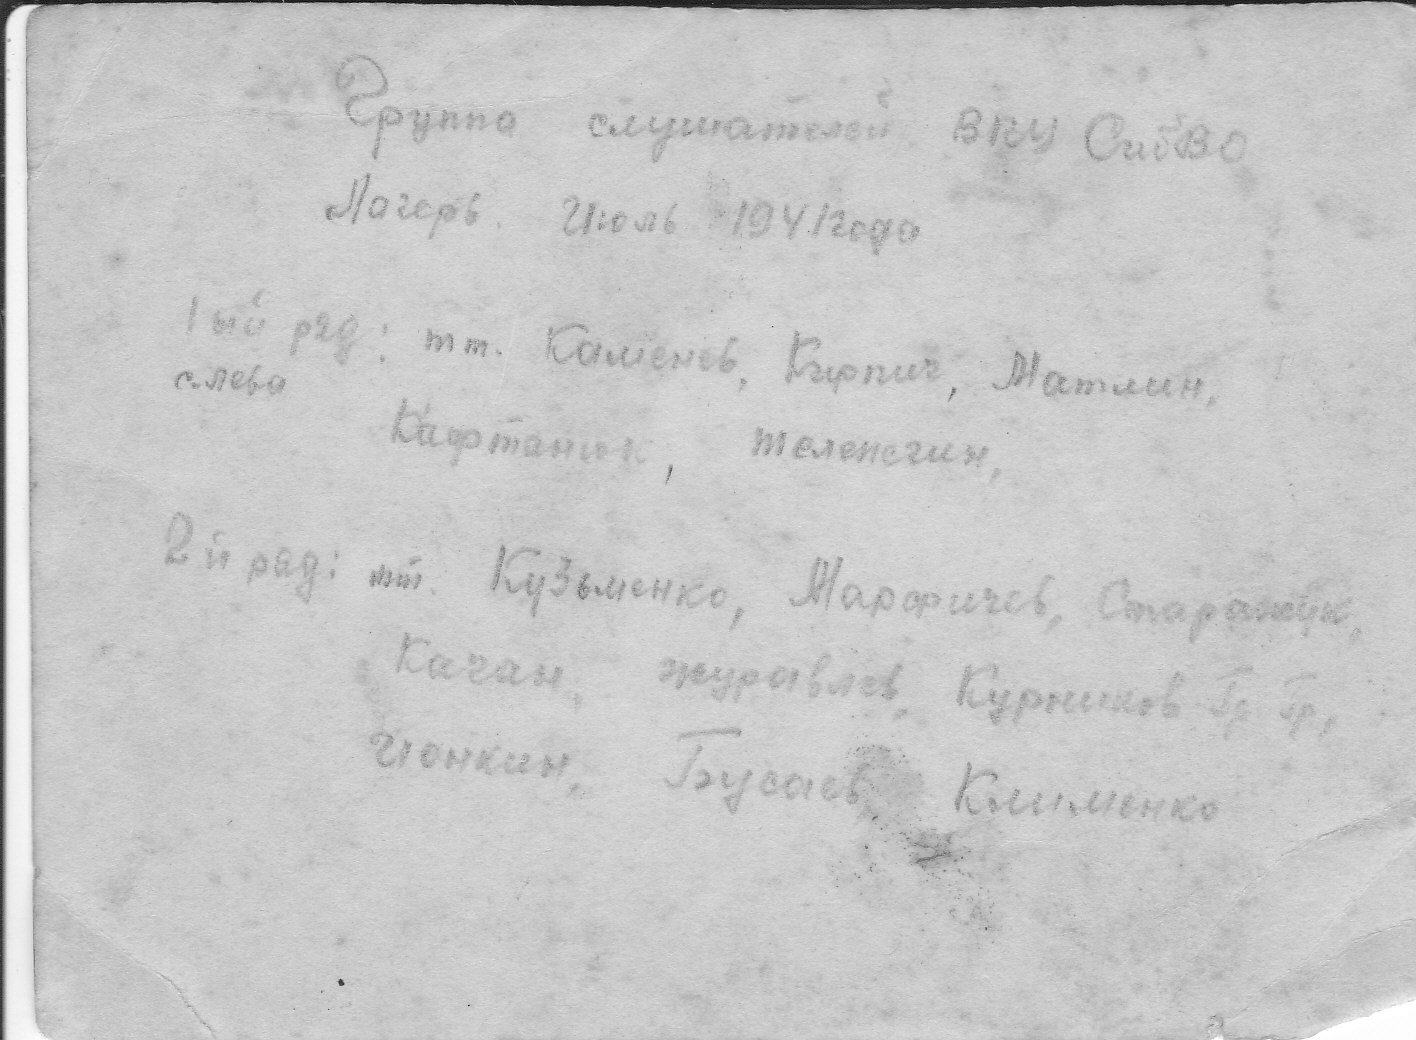 Группа слушателей ВПУ СибВО
Лагерь. Июль 1941 года
1ый ряд: тт. Каменев, Кирпич, Матлин,
слева
Кафтанюк, Телепегин,
2й ряд: тт. Кузьменко, Марфичев,
Качан, Журавлев, Курников Гр. Гр.,
Бусаев, Клименко